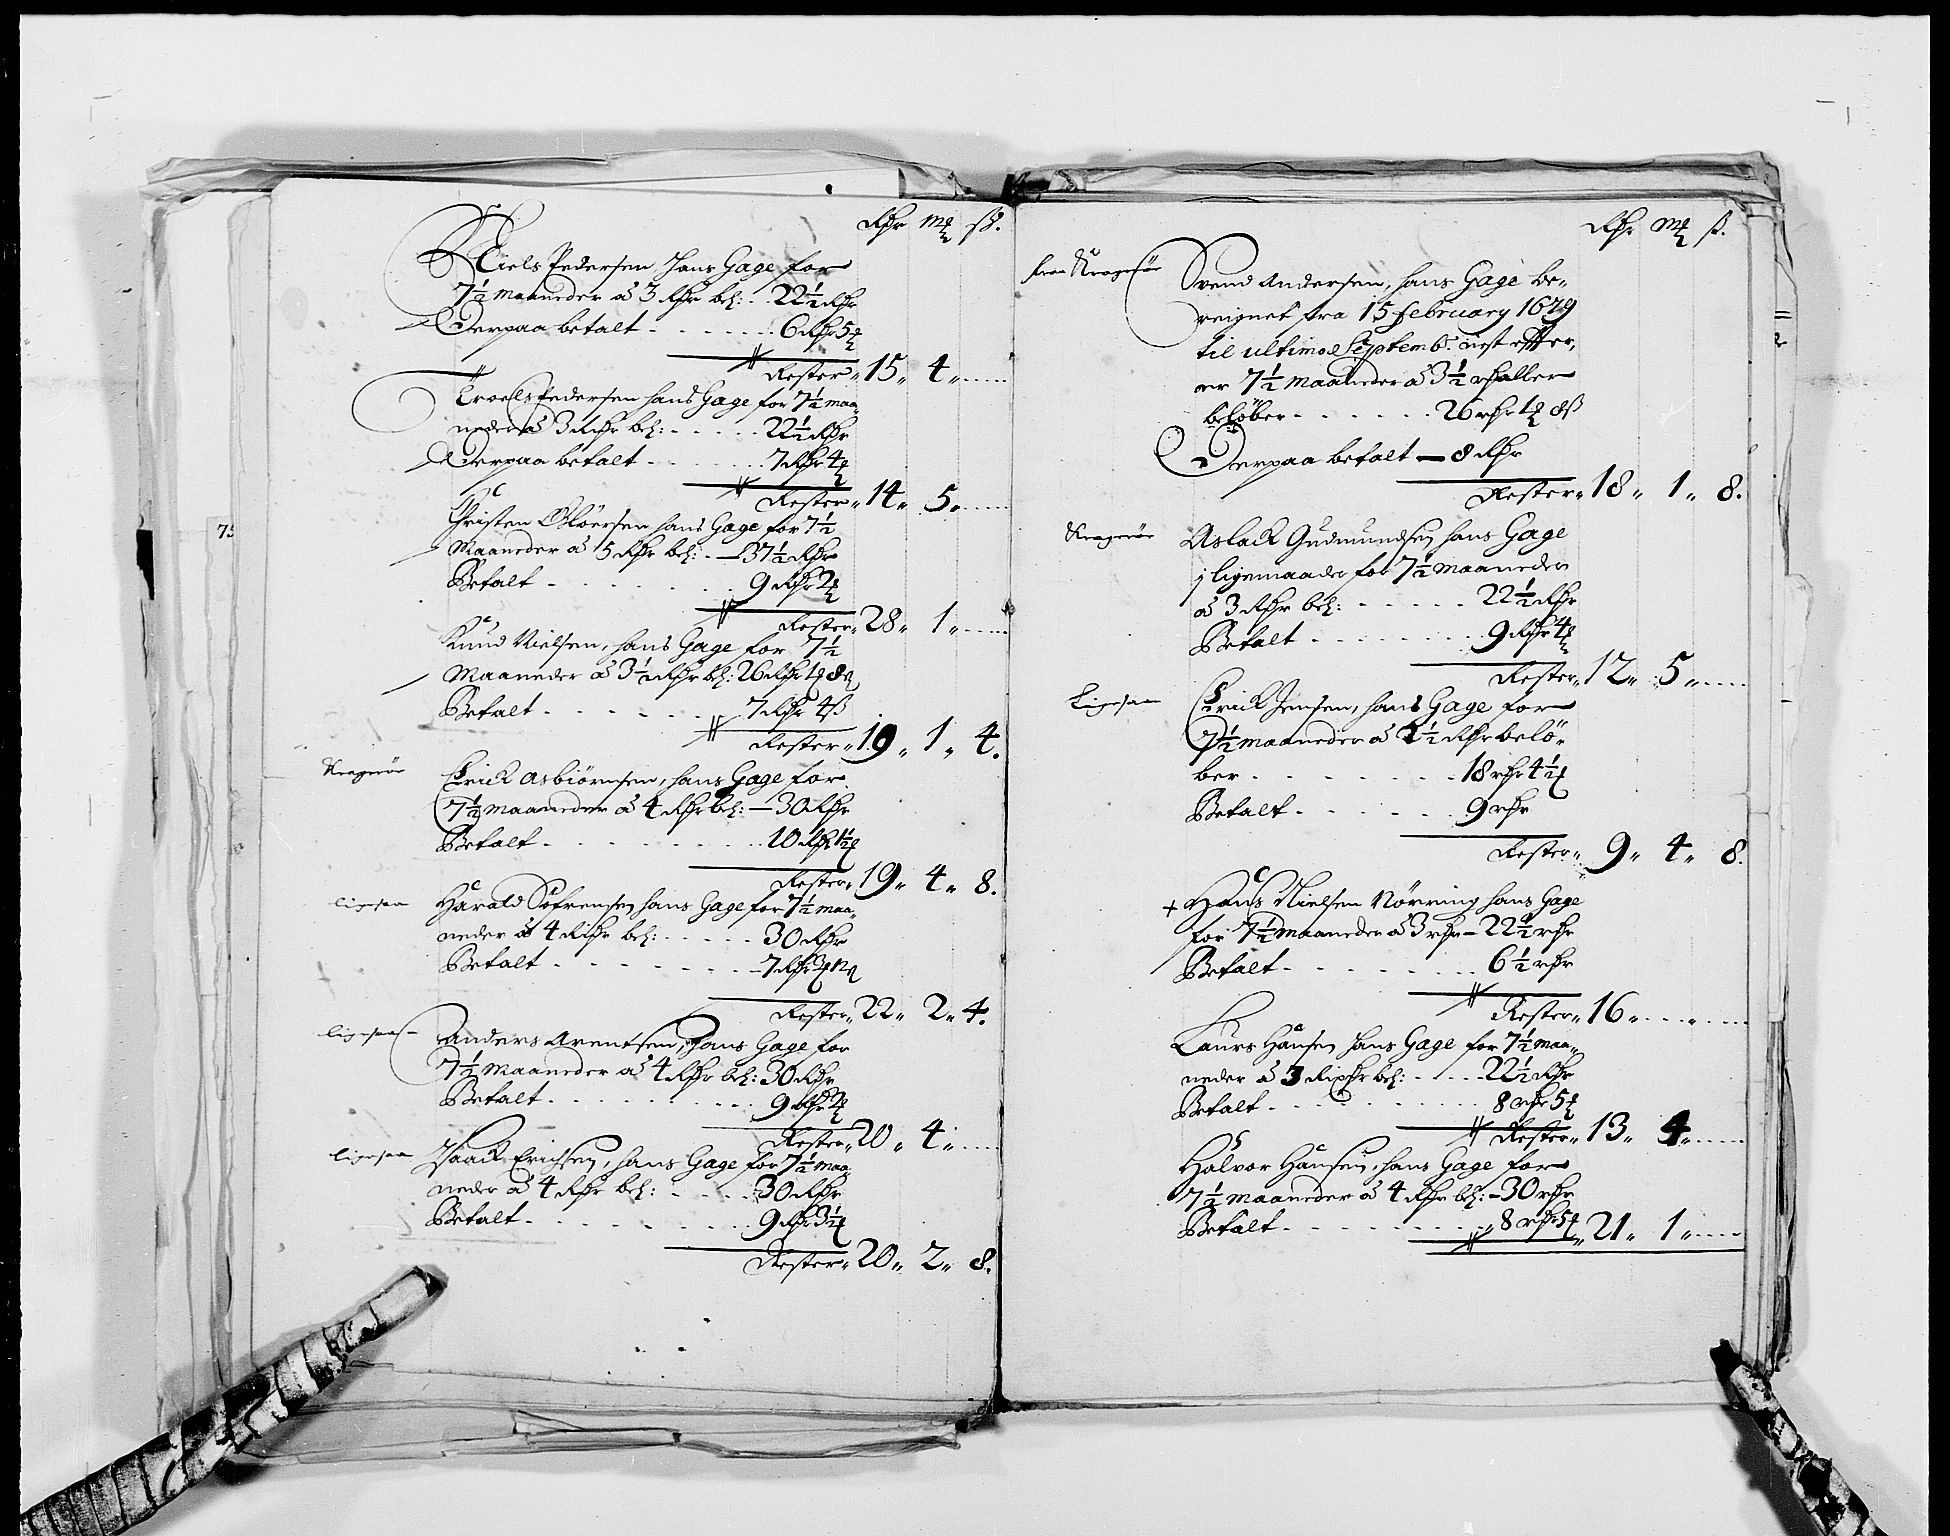 Rdr mk ß.
Niels Pedersen, hans Gage for
7½ maaneder â 3 Rdr bel: 22½ Rdr
Derpaa betalt - - - - - 6 Rdr 5 mk
Rester „ 15 „ 4 „
Troels Pedersen hans Gage for 7½ maa-
neder â 3 Rdr bel: - - - - 22½ Rdr
Derpaa betalt - - - - - 7 Rdr 4 mk
Rester „ 14 „ 5 „
Christen hans Gage for 7½
Maaneder â 5 Rdr bel: - 37½ Rdr
Betalt - - - - - 9 Rdr 2 mk
Rester „ 28 „ 1 „
Knud Nielsen, hans Gage for 7½
Maaneder â 3½ Rdr bel: 26 Rdr 1 mk 8 ß
Betalt - - - - - 7 Rdr 4 ß
Rester „ 19 „ 1 „ 4.
Kragerøe
Erick Asbiørnsen, hans Gage for
7½ maaneder â 4 Rdr bel: - 30 Rdr
Betalt - - - - - 10 Rdr 1½ mk
Rester „ 19 „ 4 „ 8.
ligesaa
Harald Søfrensen hans Gage for 7½ maa-
neder â 4 Rdr bel: - - - - 30 Rdr
Betalt - - - - - 7 Rdr 3 mk 12 ß
Rester „ 22 „ 2 „ 4.
ligesaa
Anders Arentsen, hans Gage for
7½ Maaneder â 4 Rdr bel: 30 Rdr
Betalt - - - - - 9 Rdr 2 mk
Rester „ 20 „ 4 „
ligesaa
Isaack Erichsen, hans Gage for 7½ maa-
neder â 4 Rdr bel: - - - - 30 Rdr
Betalt - - - - - 9 Rdr 3½ mk
Rester „ 20 „ 2 „ 8.
Rdr mk ß.
fra Kragerøe
Svend Andersen, hans Gage be-
reignet fra 15 february 1679
til ultimo Septemb: nest effter,
er 7½ maaneder â 3½ rdaller
beløber - - - - - 26 rdr 1 mk 8 ß
Derpaa betalt - 8 Rdr
Rester „ 18 „ 1 „ 8.
Kragerøe
Aslack Gudmundsen hans Gage
j ligemaade for 7½ maaneder
â 3 Rdr bel: - - - - - 22½ Rdr
Betalt - - - - - 9 Rdr 4 mk
Rester „ 12 „ 5 „
Ligesaa
Erick Jensen, hans Gage for
7½ maaneder â 2½ Rdr belø-
ber - - - - - 18 rdr 4½ mk
Betalt - - - - - 9 rdr
Rester „ 9 „ 4 „ 8.
+ Hans Nielsen Nørring hans Gage
for 7½ maaneder â 3 rdr - 22½ rdr
Betalt - - - - - 6½ rdr
Rester „ 16 „
Laurs Hansen hans Gage for 7½ maa-
neder â 3 Rixdr bel: - - - 22½ Rdr
Betalt - - - - - 8 rdr 5 mk
Rester „ 13 „ 4 „
Halvor Hansen, hans Gage for
7½ maaneder â 4 Rdr bel: - 30 rdr
Betalt - - - - - 8 rdr 5 mk „ 21 „ 1 „